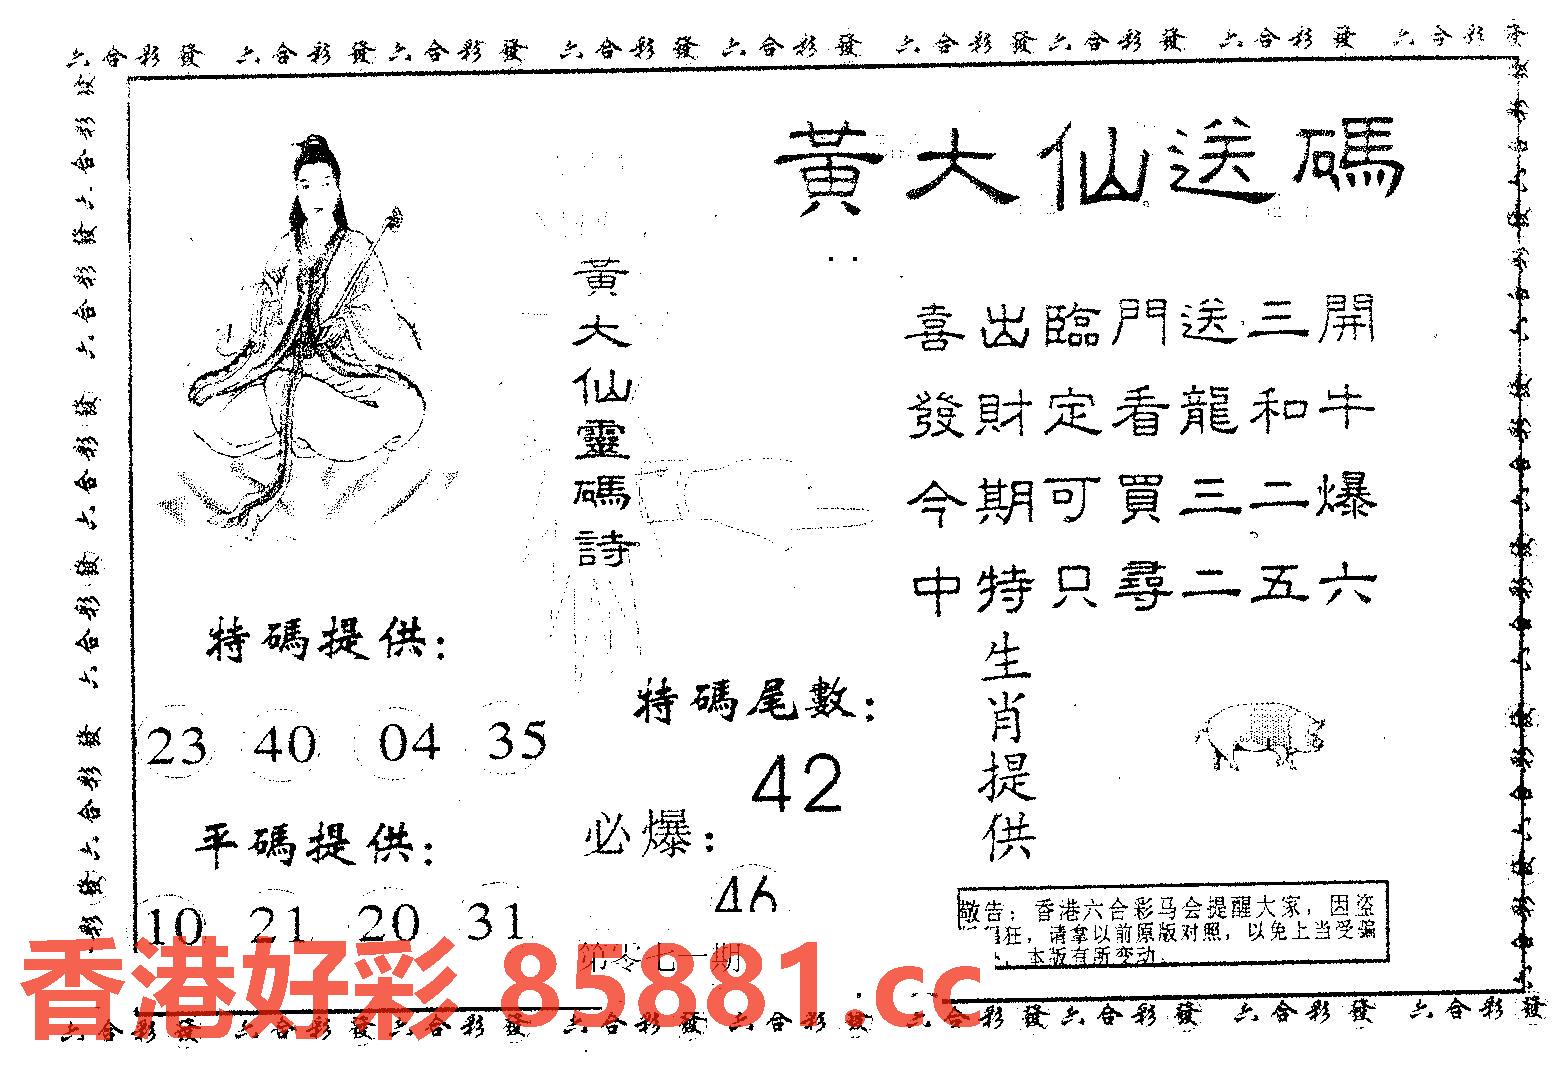 六合彩發 六合彩發 六合彩發 六合彩發 六合彩發 六合彩發 六合彩發 六合彩發 六合彩發
黃大仙送碼
黃大仙靈碼詩
喜出臨門送三開
發財定看龍和牛
今期可買三二爆
中特只尋二五六
特碼提供：
23 40 04 35
平碼提供：
10 21 20 31
特碼尾數：
42
必爆：
46
第零七一期
生肖提供
敬告：香港六合彩马会提醒大家，因盗
狂，请拿以前原版对照，以免上当受骗
本版有所变动
香港好彩 85881.cc
六合彩發 六合彩發 六合彩發 六合彩發 六合彩發 六合彩發 六合彩發 六合彩發 六合彩發